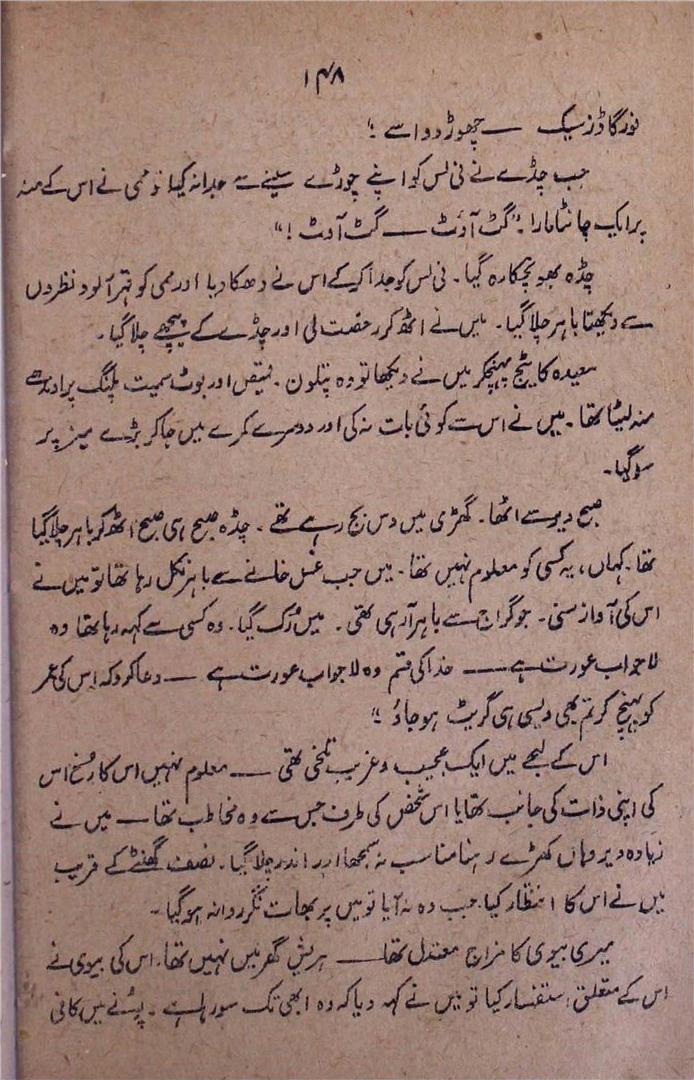 ۱۴۸
فور گاڈز سیک ــــ چھوڑ دو اسے !"
جب چڈے نے فی لس کو اپنے چوڑے سینے سے جدا نہ کیا تو ممی نے اس کے منہ
پر ایک چانٹا مارا۔ "گٹ آؤٹ ــــ گٹ آؤٹ !"
چڈہ بھونچکا رہ گیا۔ فی لس کو جدا کر کے اس نے دھکا دیا اور ممی کو قہر آلود نظروں
سے دیکھتا باہر چلا گیا۔ میں نے اٹھ کر رخصت لی اور چڈے کے پیچھے چلا گیا۔
سعیدہ کاٹیج پہنچکر میں نے دیکھا تو وہ پتلون۔ قمیص اور بوٹ سمیت پلنگ پر اوندھے
منہ لیٹا تھا۔ میں نے اس سے کوئی بات نہ کی اور دوسرے کمرے میں جا کر بڑے میز پر
سو گیا۔
صبح دیر سے اٹھا۔ گھڑی میں دس بج رہے تھے۔ چڈہ صبح ہی صبح اٹھ کر باہر چلا گیا
تھا۔ کہاں، یہ کسی کو معلوم نہیں تھا۔ میں جب غسل خانے سے باہر نکل رہا تھا تو میں نے
اس کی آواز سنی۔ جو گراج سے باہر آ رہی تھی۔ میں رُک گیا۔ وہ کسی سے کہہ رہا تھا وہ
لاجواب عورت ہے ــــ خدا کی قسم وہ لاجواب عورت ہے ــــ دعا کرو کہ اس کی عمر
کو پہنچ کر تم بھی ویسی ہی گریٹ ہو جاؤ !"
اس کے لہجے میں ایک عجیب و غریب تلخی تھی ــــ معلوم نہیں اس کا رُخ اس
کی اپنی ذات کی جانب تھا یا اس شخص کی طرف جس سے وہ مخاطب تھا ــــ میں نے
زیادہ دیر وہاں کھڑے رہنا مناسب نہ سمجھا اور اندر چلا گیا۔ نصف گھنٹے کے قریب
میں نے اس کا انتظار کیا۔ جب وہ نہ آیا تو میں پربھات نگر روانہ ہو گیا۔
میری بیوی کا مزاج معتدل تھا ــــ ہریش گھر میں نہیں تھا۔ اس کی بیوی نے
اس کے متعلق استفسار کیا تو میں نے کہہ دیا کہ وہ ابھی تک سو رہا ہے۔ پونے میں کافی